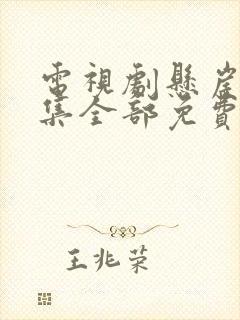 電視劇懸崖
集全部免費
王兆荣